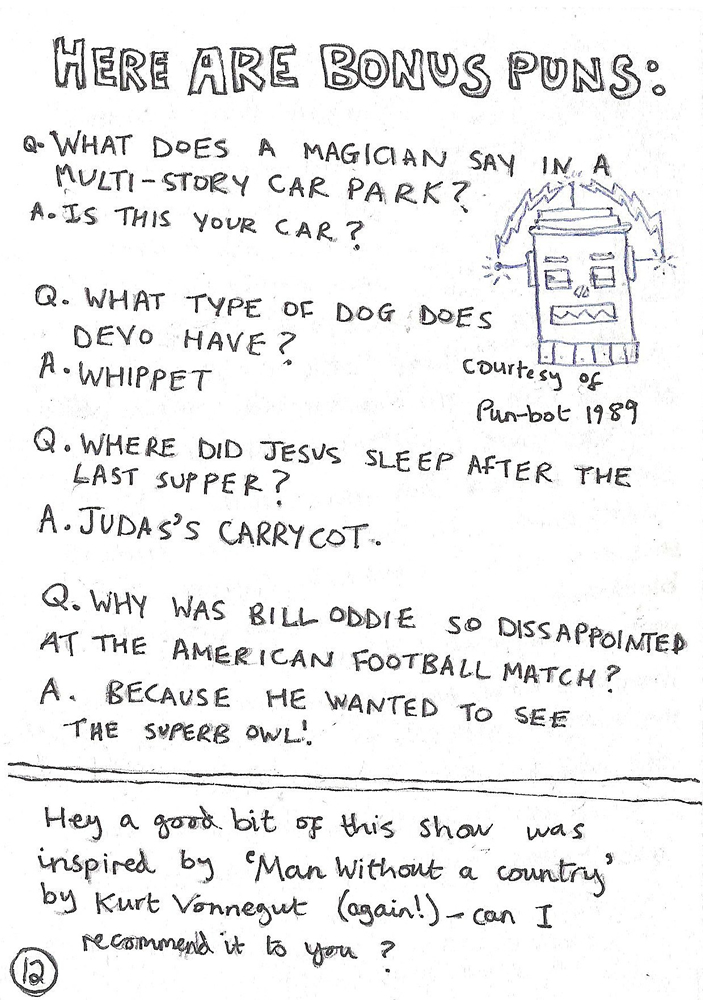 HERE ARE BONUS PUNS:
Q. WHAT DOES A MAGICIAN SAY IN A
MULTI-STORY CAR PARK?
A. IS THIS YOUR CAR?
Q. WHAT TYPE OF DOG DOES
DEVO HAVE?
A. WHIPPET
courtesy of
Pun-bot 1989
Q. WHERE DID JESUS SLEEP AFTER THE
LAST SUPPER?
A. JUDAS'S CARRYCOT.
Q. WHY WAS BILL ODDIE SO DISSAPPOINTED
AT THE AMERICAN FOOTBALL MATCH?
A. BECAUSE HE WANTED TO SEE
THE SUPERB OWL!
Hey a good bit of this show was
inspired by 'Man Without a country'
by Kurt Vonnegut (again!) - can I
recommend it to you?
12